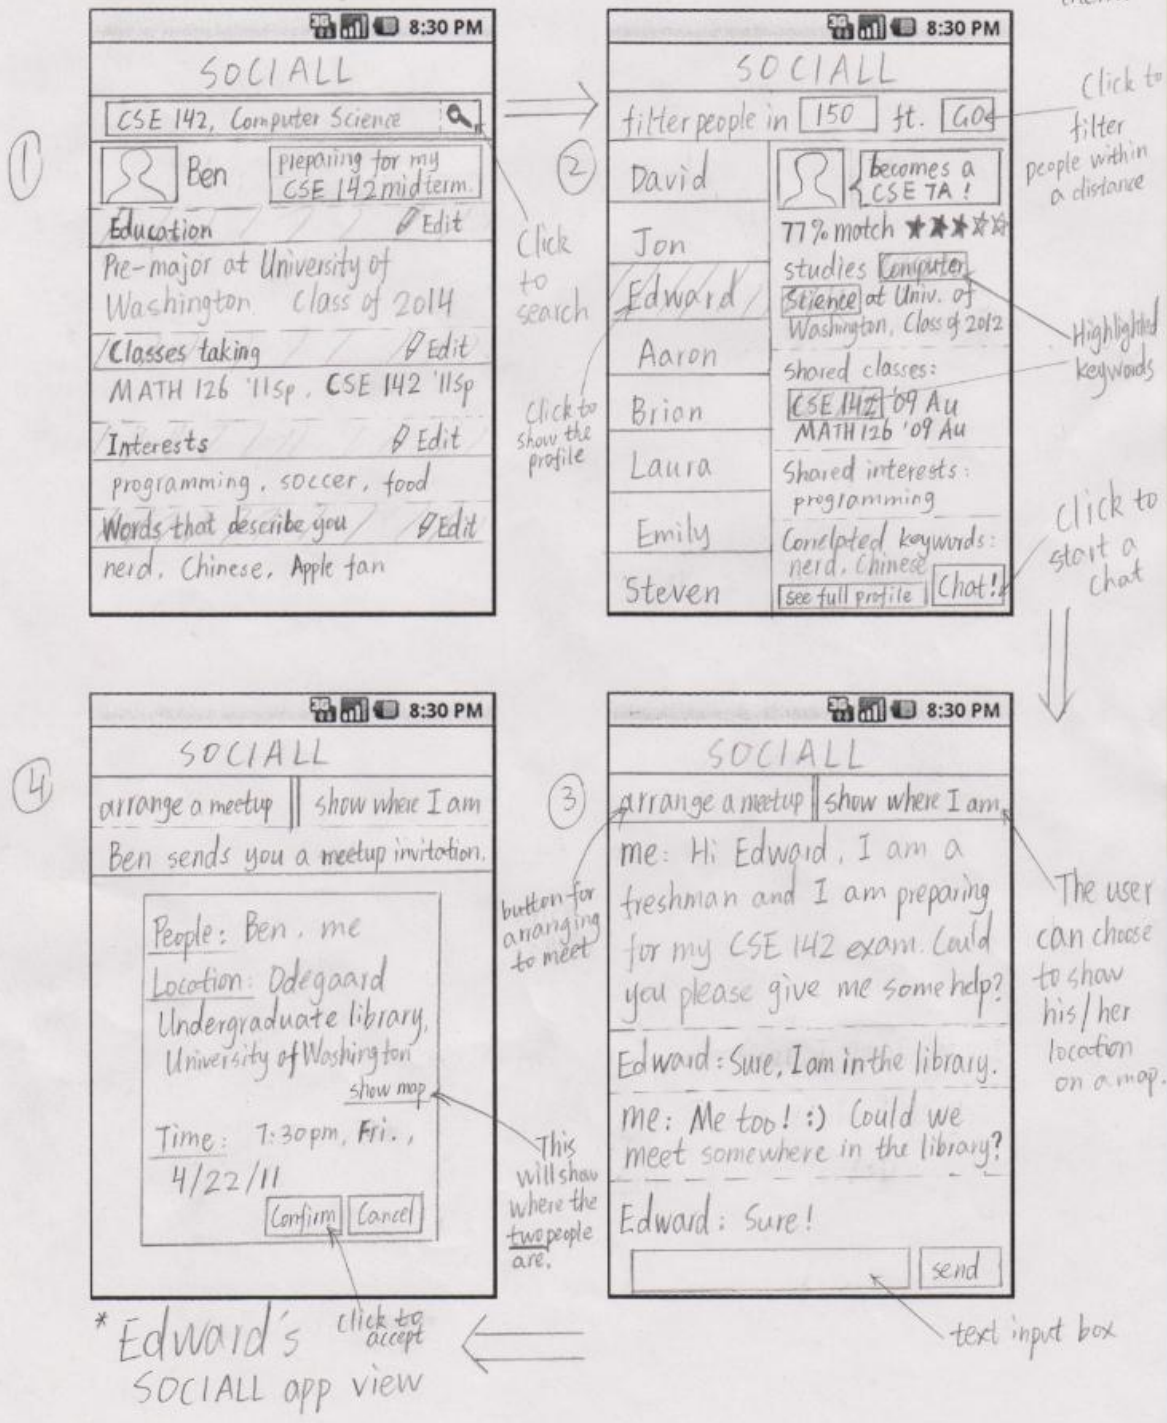 8:30 PM
SOCIALL
CSE 142, Computer Science
1
Ben
preparing for my
CSE 142 midterm.
Education
Edit
Pre-major at University of
Washington Class of 2014
Classes taking
Edit
MATH 126 '11sp, CSE 142 '11sp
Interests
Edit
programming, soccer, food
Words that describe you
Edit
nerd, Chinese, Apple fan
Click
to
search
8:30 PM
SOCIALL
filter people in 150 ft. GO
Click to
filter
people within
a distance
2
David
Jon
Edward
Aaron
Brian
Laura
Emily
Steven
Click to
show the
profile
becomes a
CSE TA!
77% match
studies Computer
Science at Univ. of
Washington, Class of 2012
Highlighted
keywords
Shared classes:
CSE 142 '09 Au
MATH 126 '09 Au
Shared interests:
programming
Correlated keywords:
nerd, Chinese
see full profile
Chat!
Click to
start a
chat
8:30 PM
SOCIALL
3
arrange a meetup
show where I am
me: Hi Edward, I am a
freshman and I am preparing
for my CSE 142 exam. Could
you please give me some help?
Edward: Sure, I am in the library.
me: Me too! :) Could we
meet somewhere in the library?
Edward: Sure!
send
button for
arranging
to meet
The user
can choose
to show
his/her
location
on a map.
text input box
8:30 PM
SOCIALL
4
arrange a meetup
show where I am
Ben sends you a meetup invitation.
People: Ben, me
Location: Odegaard
Undergraduate library,
University of Washington
show map
Time: 7:30pm, Fri.,
4/22/11
Confirm
Cancel
This
will show
where the
two people
are.
click to
accept
* Edward's
SOCIALL app view